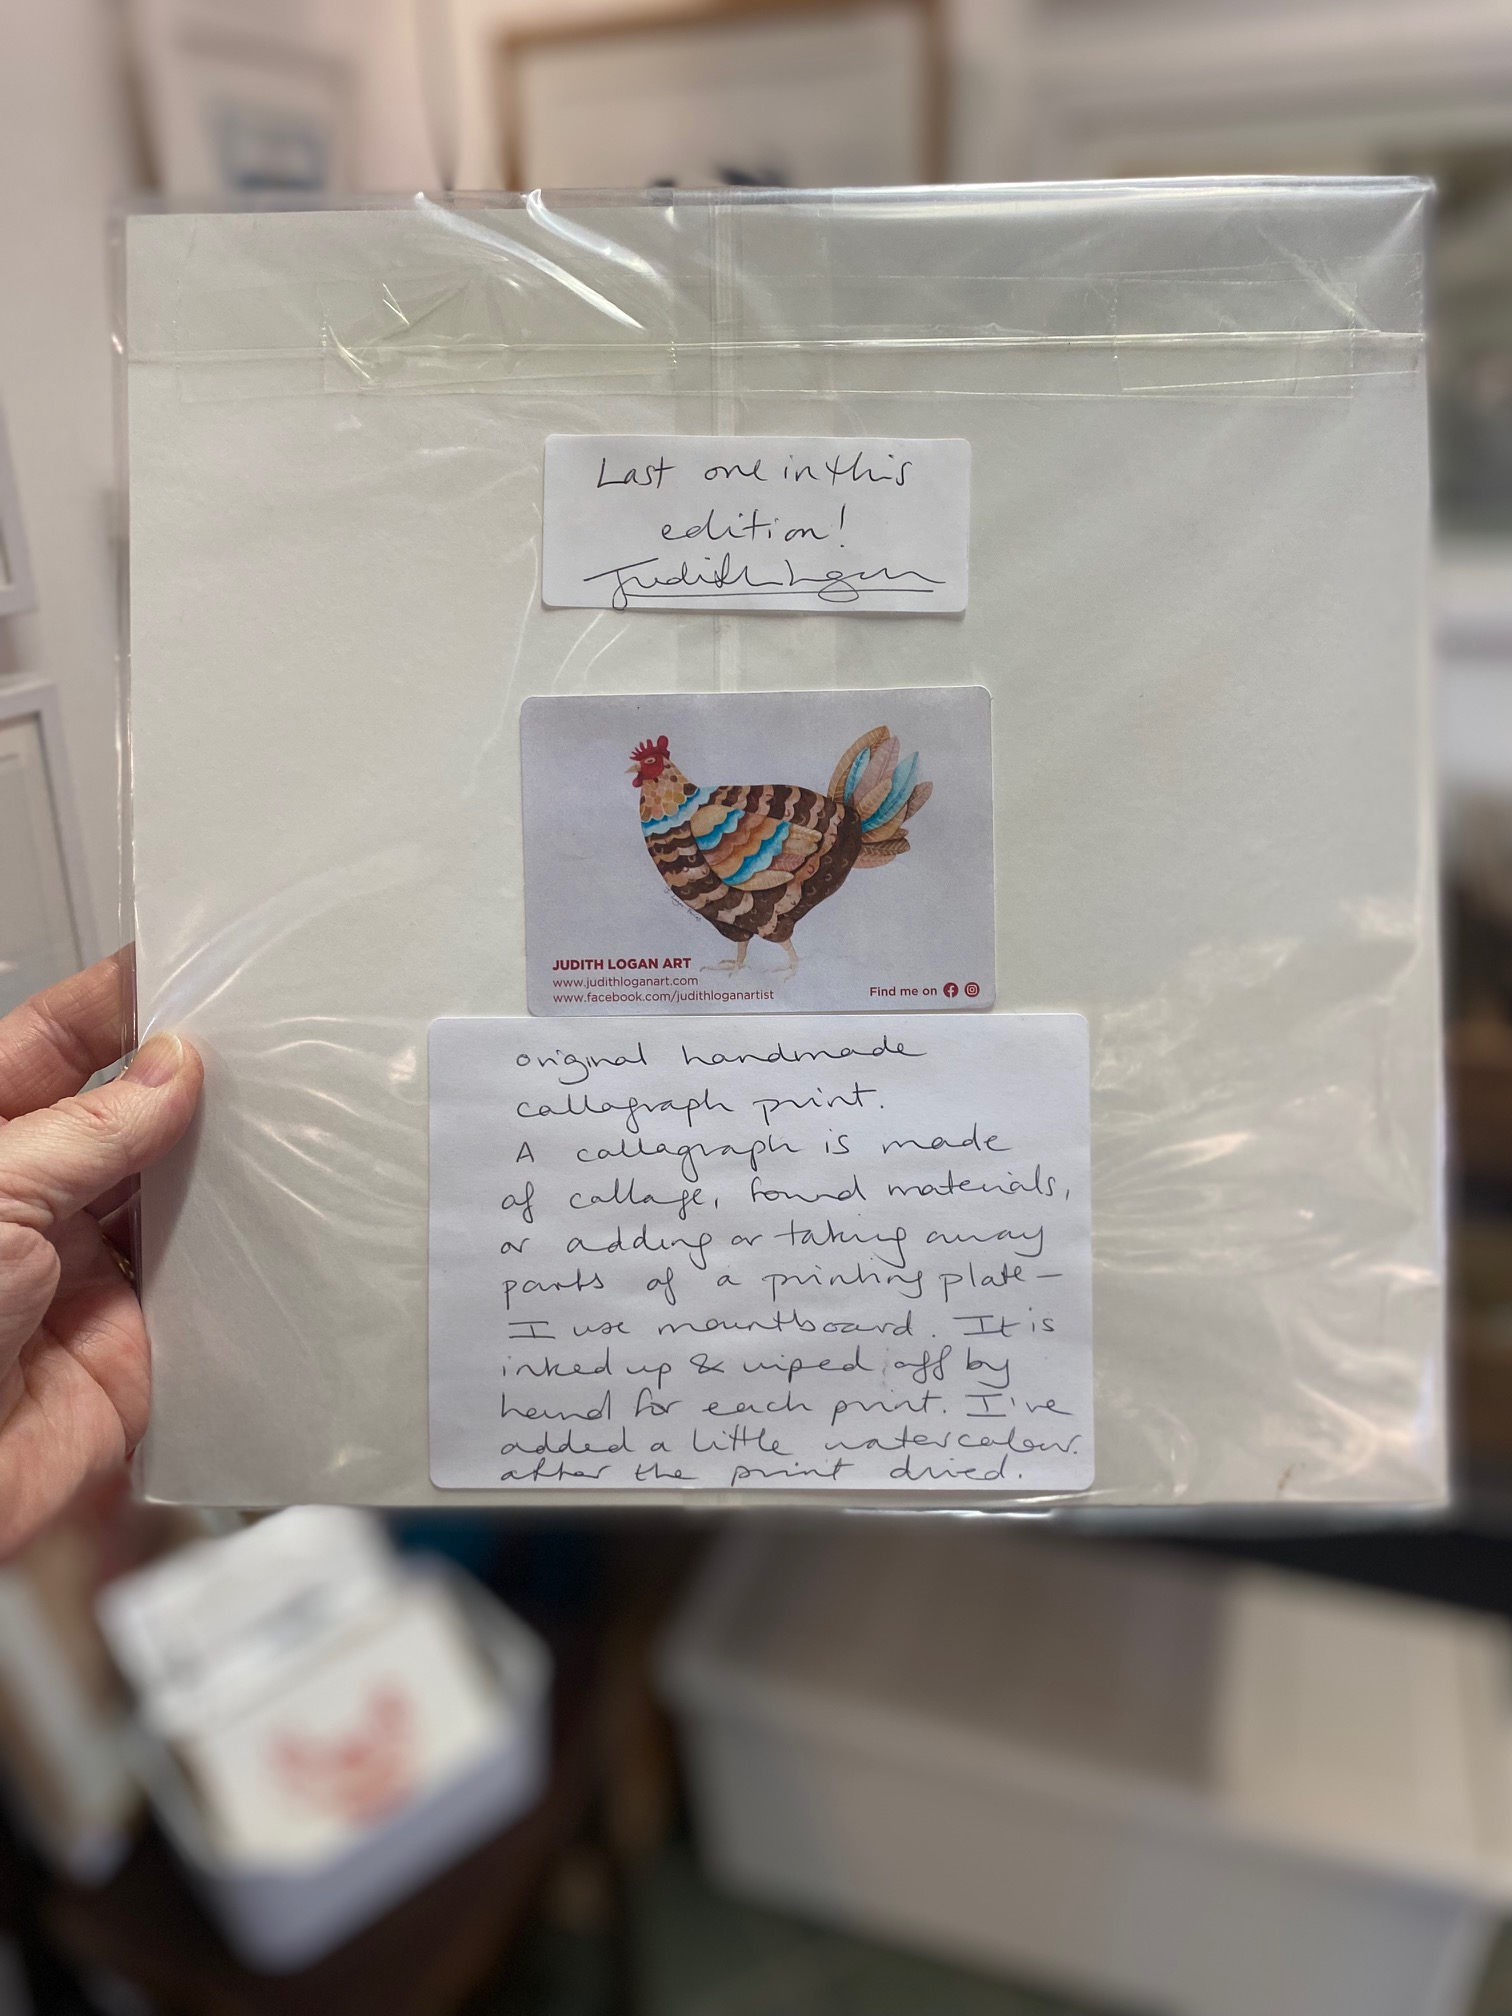 Last one in this
edition!
Judith Logan
JUDITH LOGAN ART
www.judithloganart.com
www.facebook.com/judithloganartist
Find me on
original handmade
collagraph print.
A collagraph is made
of collage, found materials,
or adding or taking away
parts of a printing plate —
I use mountboard. It is
inked up & wiped off by
hand for each print. I've
added a little watercolour
after the print dried.